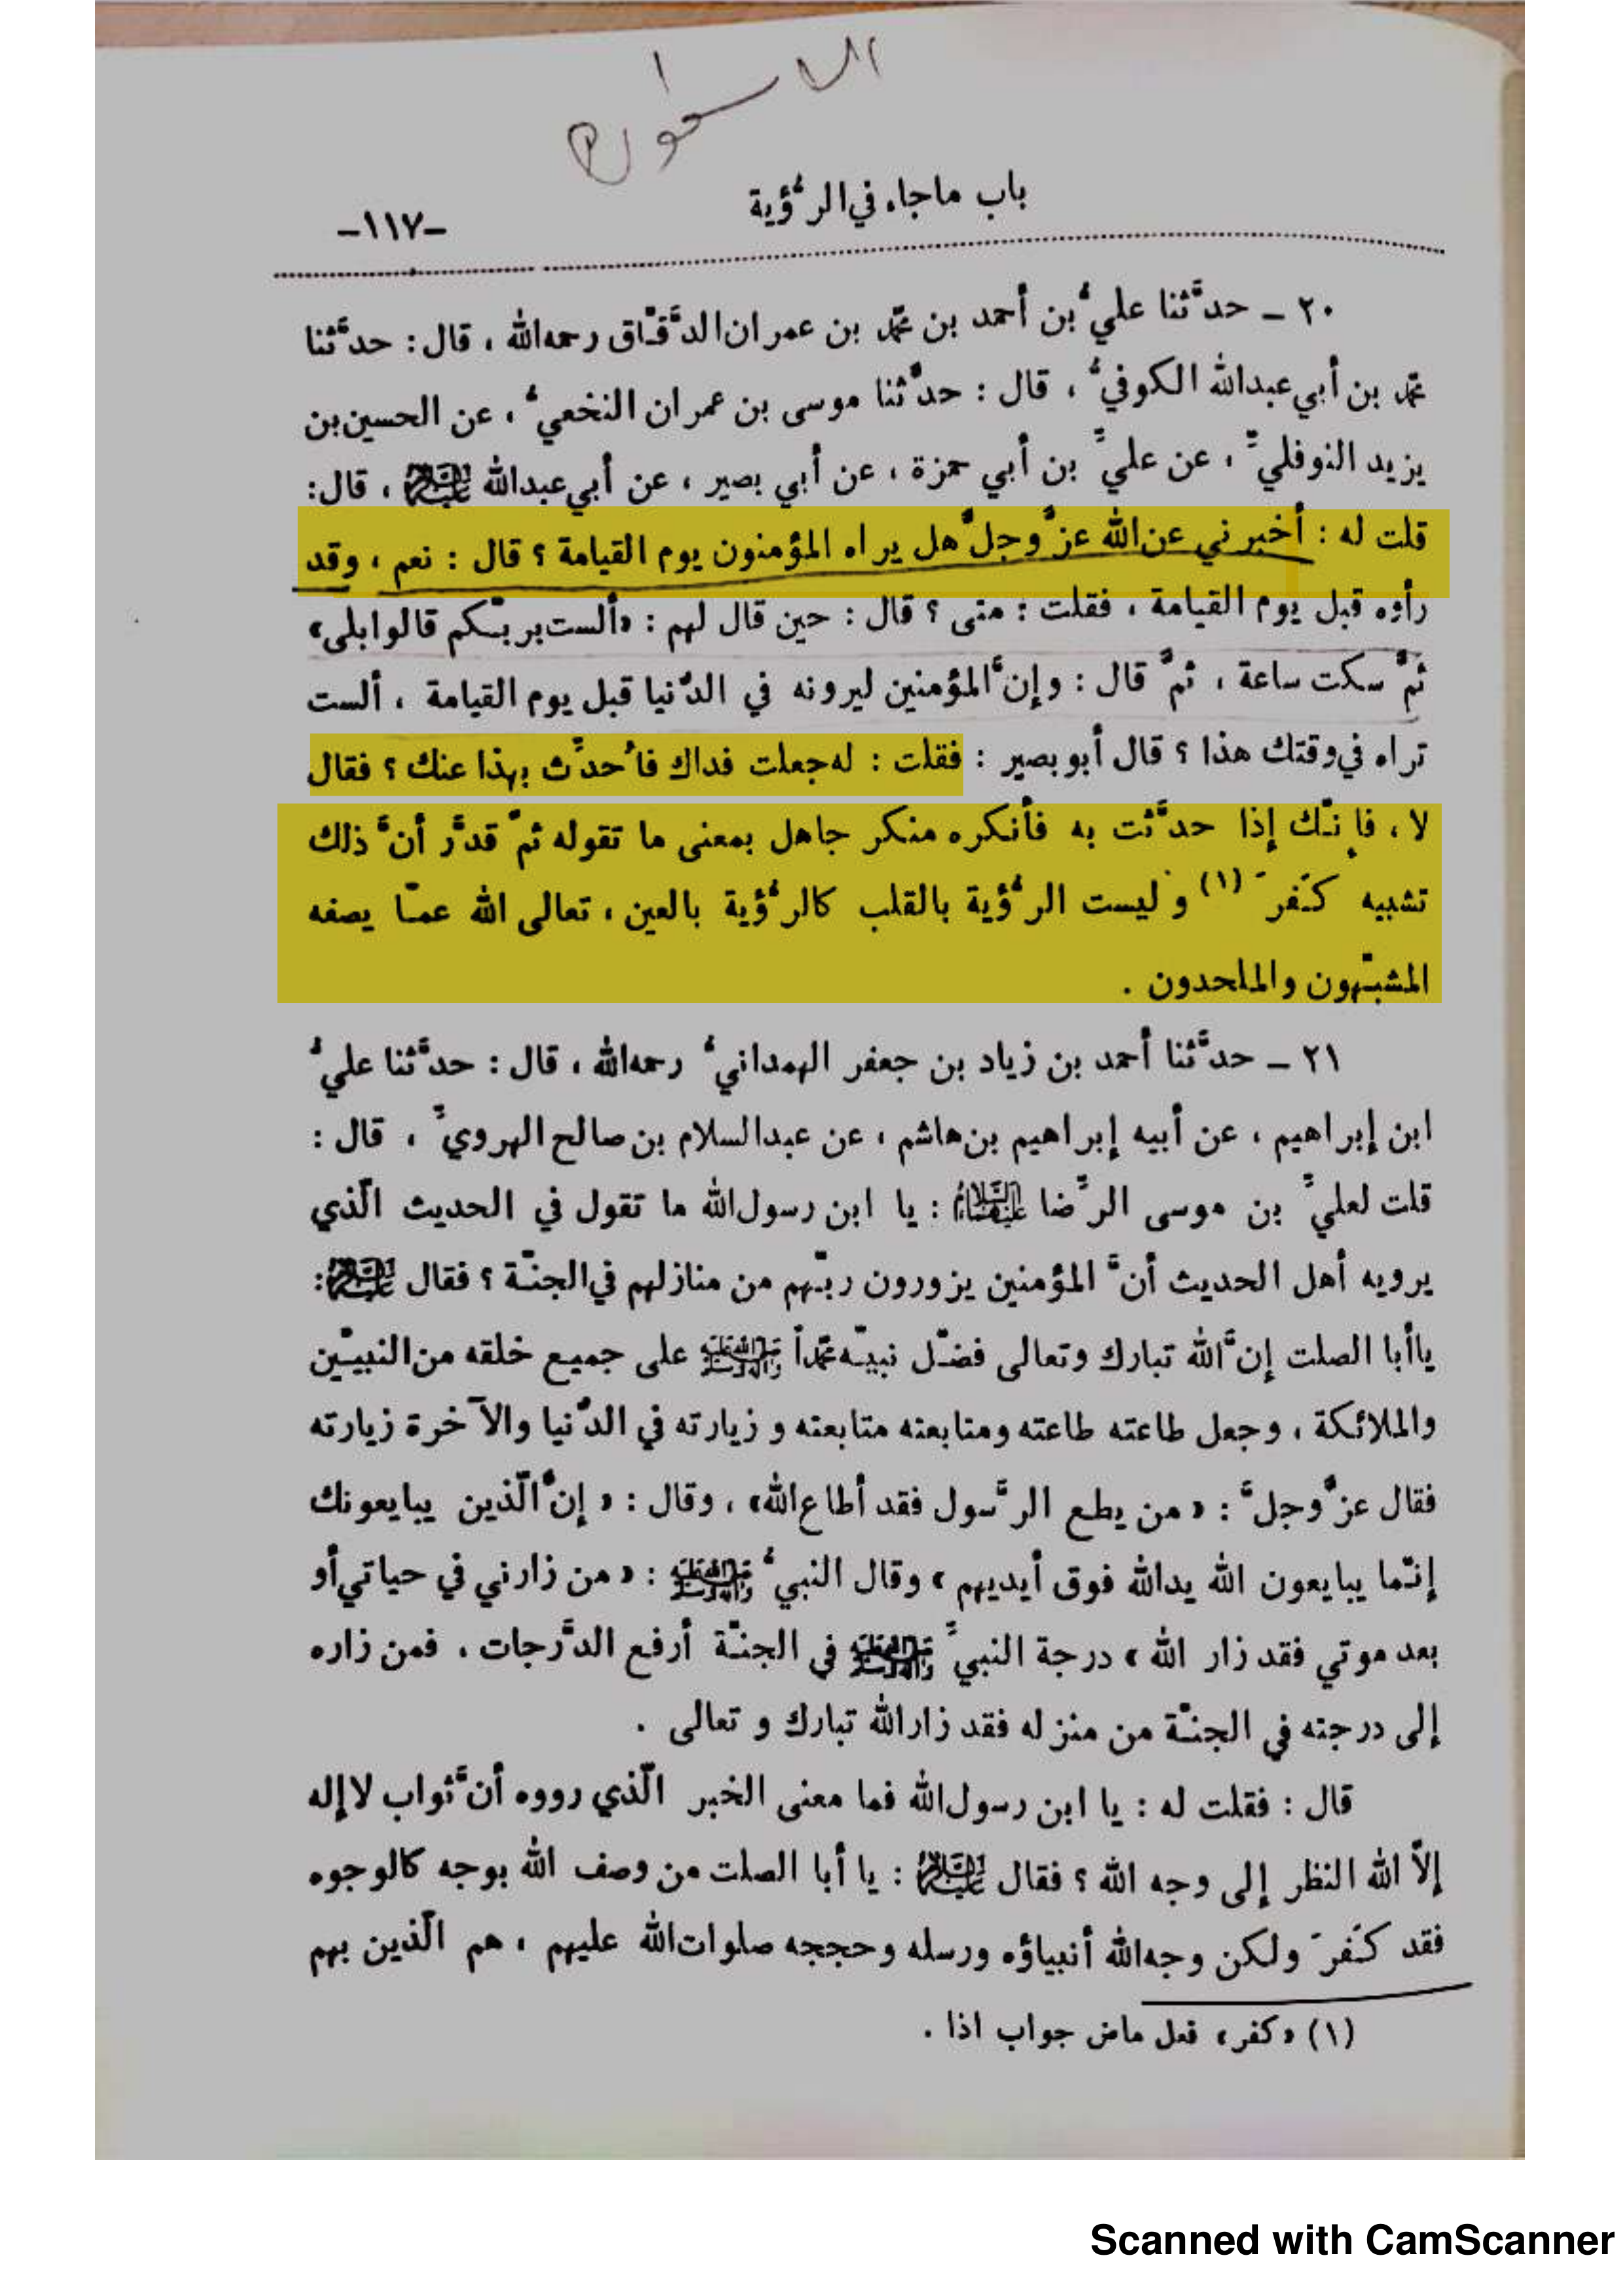 باب ماجاء في الرُّؤية
-١١٧-
٢٠ ـ حدَّثنا عليُّ بن أحمد بن محمّد بن عمران الدَّقّاق رحمه الله ، قال : حدَّثنا
محمّد بن أبي عبدالله الكوفيُّ ، قال : حدَّثنا موسى بن عمران النخعيُّ ، عن الحسين بن
يزيد النوفليِّ ، عن عليِّ بن أبي حمزة ، عن أبي بصير ، عن أبي عبدالله عليه السلام ، قال :
قلت له : أخبرني عن الله عزَّ وجلَّ هل يراه المؤمنون يوم القيامة ؟ قال : نعم ، وقد
رأوه قبل يوم القيامة ، فقلت : متى ؟ قال : حين قال لهم : «ألست بربّكم قالوا بلى»
ثمَّ سكت ساعة ، ثمَّ قال : وإنَّ المؤمنين ليرونه في الدُّنيا قبل يوم القيامة ، ألست
تراه في وقتك هذا ؟ قال أبو بصير : فقلت : له جعلت فداك فاُحدِّث بهذا عنك ؟ فقال
لا ، فإنّك إذا حدَّثت به فأنكره منكر جاهل بمعنى ما تقوله ثمَّ قدَّر أنَّ ذلك
تشبيه كَفَرَ (١) و ليست الرُّؤية بالقلب كالرُّؤية بالعين ، تعالى الله عمّا يصفه
المشبّهون والملحدون .
٢١ ـ حدَّثنا أحمد بن زياد بن جعفر الهمدانيُّ رحمه الله ، قال : حدَّثنا عليُّ
ابن إبراهيم ، عن أبيه إبراهيم بن هاشم ، عن عبدالسلام بن صالح الهرويِّ ، قال :
قلت لعليِّ بن موسى الرِّضا عليهما السلام : يا ابن رسول الله ما تقول في الحديث الّذي
يرويه أهل الحديث أنَّ المؤمنين يزورون ربّهم من منازلهم في الجنّة ؟ فقال عليه السلام :
يا أبا الصلت إنَّ الله تبارك وتعالى فضّل نبيّه محمّداً صلى الله عليه وآله وسلم على جميع خلقه من النبيّين
والملائكة ، وجعل طاعته طاعته ومتابعته متابعته و زيارته في الدُّنيا والآخرة زيارته
فقال عزَّ وجلَّ : « من يطع الرَّسول فقد أطاع الله» ، وقال : « إنَّ الّذين يبايعونك
إنّما يبايعون الله يد الله فوق أيديهم » وقال النبيُّ صلى الله عليه وآله وسلم : « من زارني في حياتي أو
بعد موتي فقد زار الله » درجة النبيِّ صلى الله عليه وآله وسلم في الجنّة أرفع الدَّرجات ، فمن زاره
إلى درجته في الجنّة من منزله فقد زار الله تبارك و تعالى .
قال : فقلت له : يا ابن رسول الله فما معنى الخبر الّذي رووه أنَّ ثواب لا إله
إلّا الله النظر إلى وجه الله ؟ فقال عليه السلام : يا أبا الصلت من وصف الله بوجه كالوجوه
فقد كَفَرَ ولكن وجه الله أنبياؤه ورسله وحججه صلوات الله عليهم ، هم الّذين بهم
(١) «كفر» فعل ماض جواب اذا .
Scanned with CamScanner